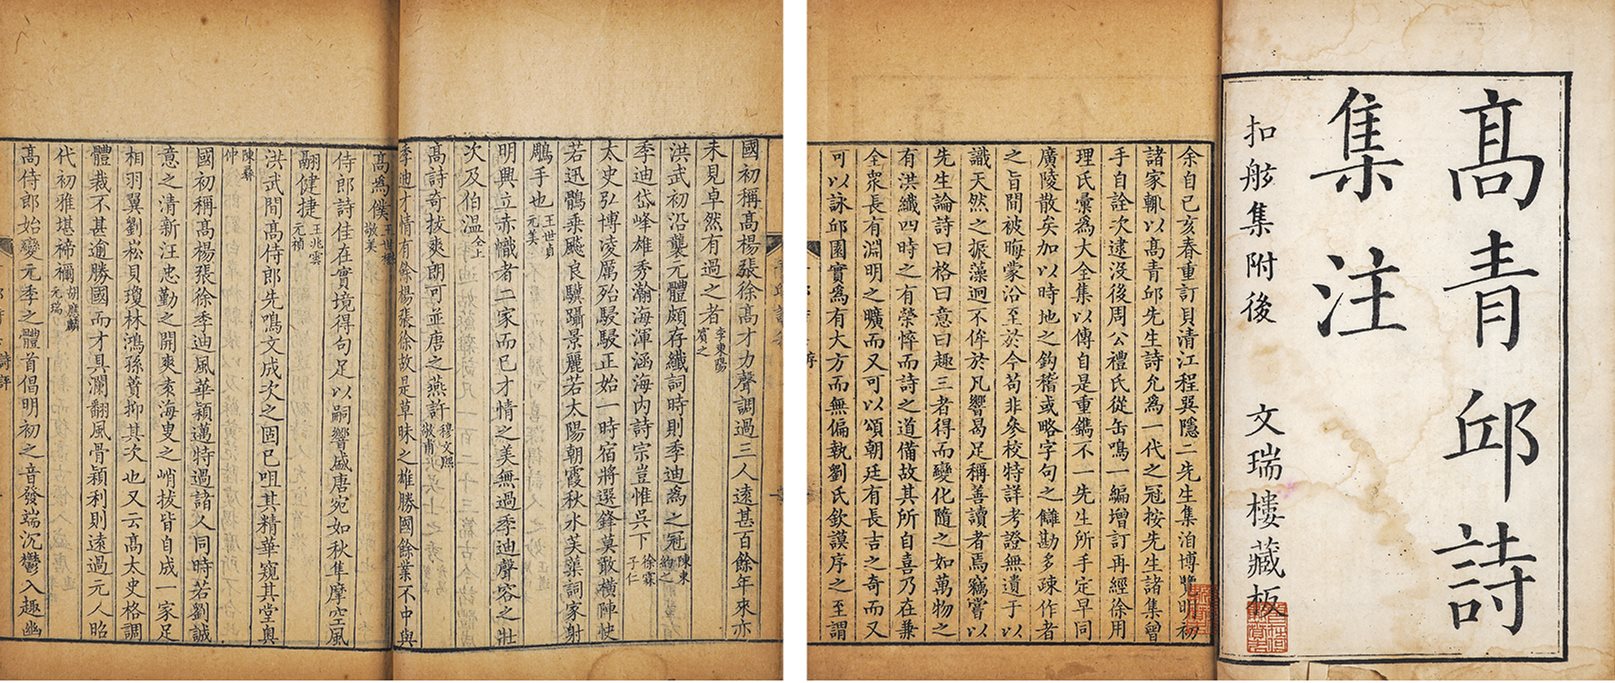 髙青邱詩
集注
扣舷集附後 文瑞樓藏板
余自己亥春重訂貝清江程巽隱二先生集洎博覽明初
諸家輒以髙青邱先生詩允為一代之冠按先生諸集曾
手自詮次逮沒後周公禮氏從缶鳴一編增訂再經徐用
理氏彙為大全集以傳自是重鐫不一先生所手定早同
廣陵散矣加以時地之鈎稽或略字句之讎勘多疎作者
之旨間被晦蒙沿至於今苟非叅校特詳考證無遺于以
識天然之振藻迥不侔於凡響曷足稱善讀者焉竊嘗以
先生論詩曰格曰意曰趣三者得而變化隨之如萬物之
有洪纖四時之有榮悴而詩之道備故其所自喜乃在兼
全衆長有淵明之曠而又可以頌朝廷有長吉之奇而又
可以詠邱園實為有大方而無偏執劉氏欽謨序之至謂
國初稱髙楊張徐髙才力聲調過三人遠甚百餘年來亦
未見卓然有過之者 李東陽賓之
洪武初沿襲元體頗存纖詞時則季迪為之冠 陳東約之
季迪岱峰雄秀瀚海渾涵海內詩宗豈惟吳下 徐霖子仁
太史弘博凌厲殆駸駸正始一時宿將選鋒莫敢橫陣快
若迅鶻乘飈良驥躡景麗若太陽朝霞秋水芙蕖詞家射
鵰手也 王世貞元美
明興立赤幟者二家而已才情之美無過季迪聲容之壯
次及伯溫 仝上
髙詩奇拔爽朗可並唐之燕許 穆文熙敬甫
季迪才情有餘楊張徐故是草昧之雄勝國餘業不中與
髙為僕 王世懋敬美
侍郎詩佳在實境得句足以嗣響盛唐宛如秋隼摩空風
翮健捷 王兆雲元禎
洪武間髙侍郎先鳴文成次之固已咀其精華窺其堂奧
陳彝仲
國初稱髙楊張徐季迪風華穎邁特過諸人同時若劉誠
意之清新汪忠勤之開爽袁海叟之峭拔皆自成一家足
相羽翼劉崧貝瓊林鴻孫蕡抑其次也又云髙太史格調
體裁不甚逾勝國而才具瀾翻風骨穎利則遠過元人昭
代初雅堪禘禰 胡應麟元瑞
髙侍郎始變元季之體首倡明初之音發端沉鬱入趣幽
詩評